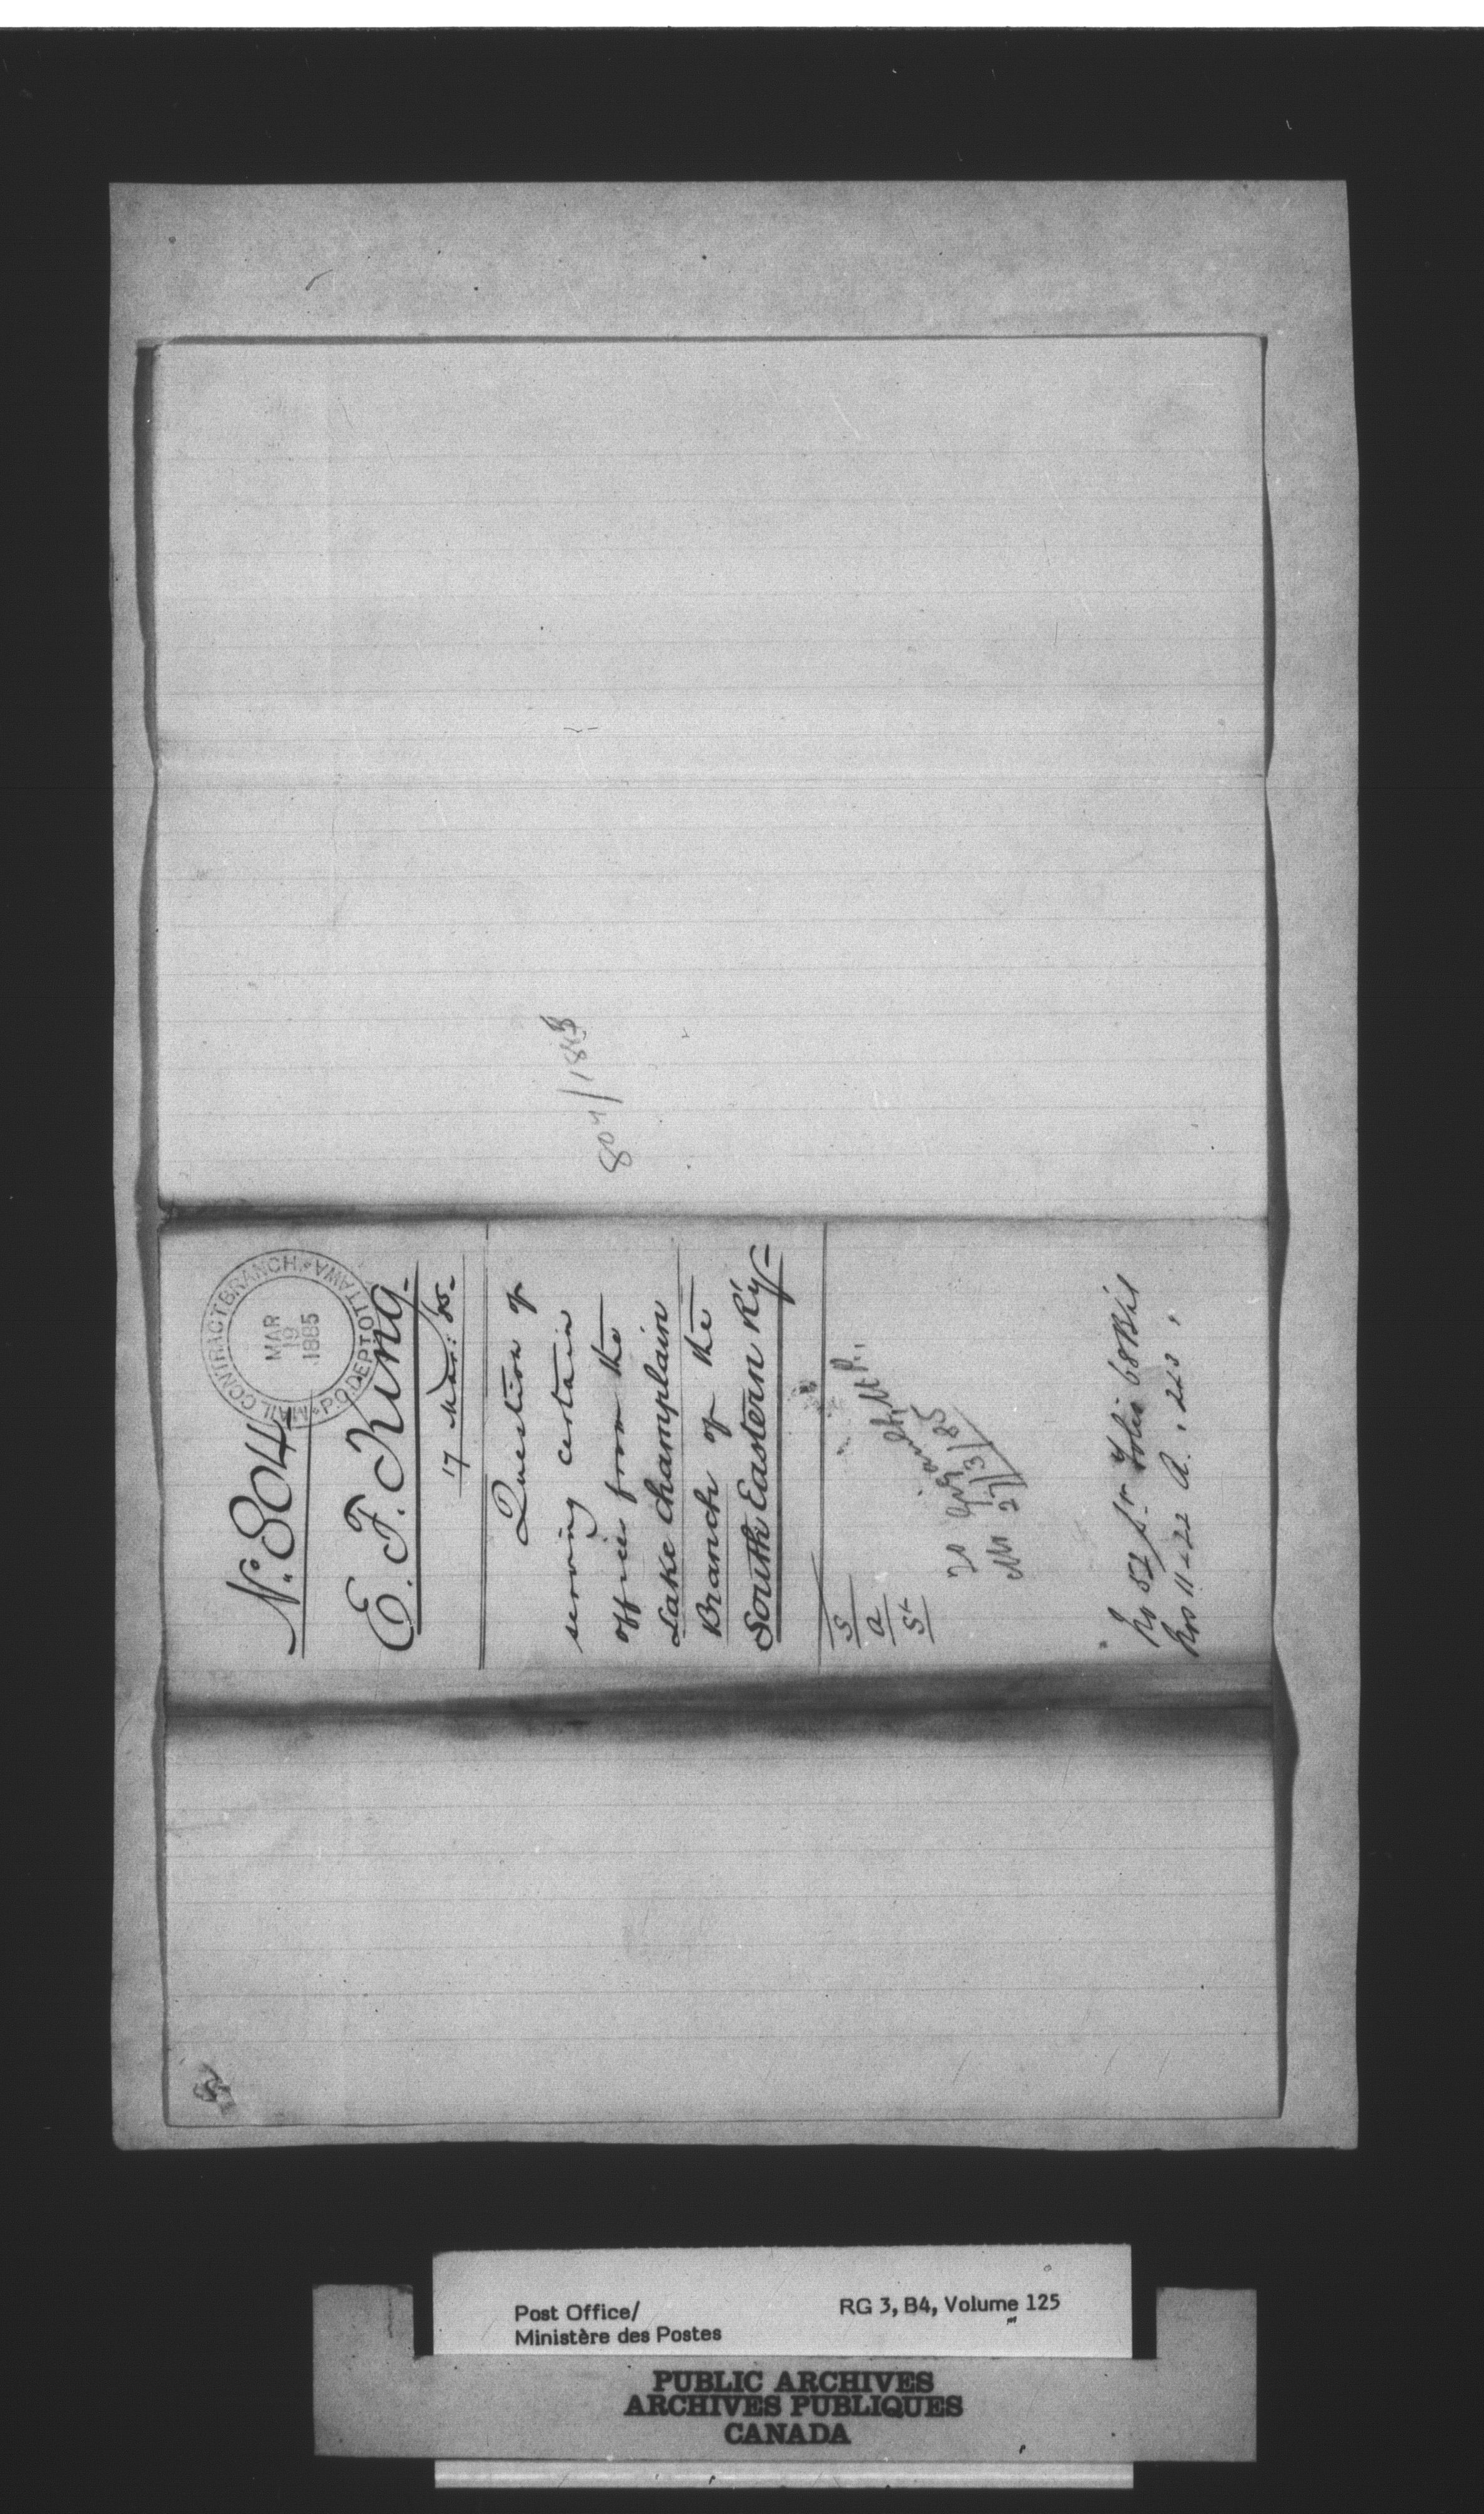 804/1885
MAIL CONTRACT BRANCH P.O. DEPT OTTAWA
MAR
19
1885
No. 804
E. F. King
17 Mar: 85.
Question of
serving certain
offices from the
Lake Champlain
Branch of the
South Eastern R'y
S
a
St
27/3/85
No 52 folio 68 Bis
Nos 11-22 A.
Post Office/
Ministère des Postes
RG 3, B4, Volume 125
PUBLIC ARCHIVES
ARCHIVES PUBLIQUES
CANADA